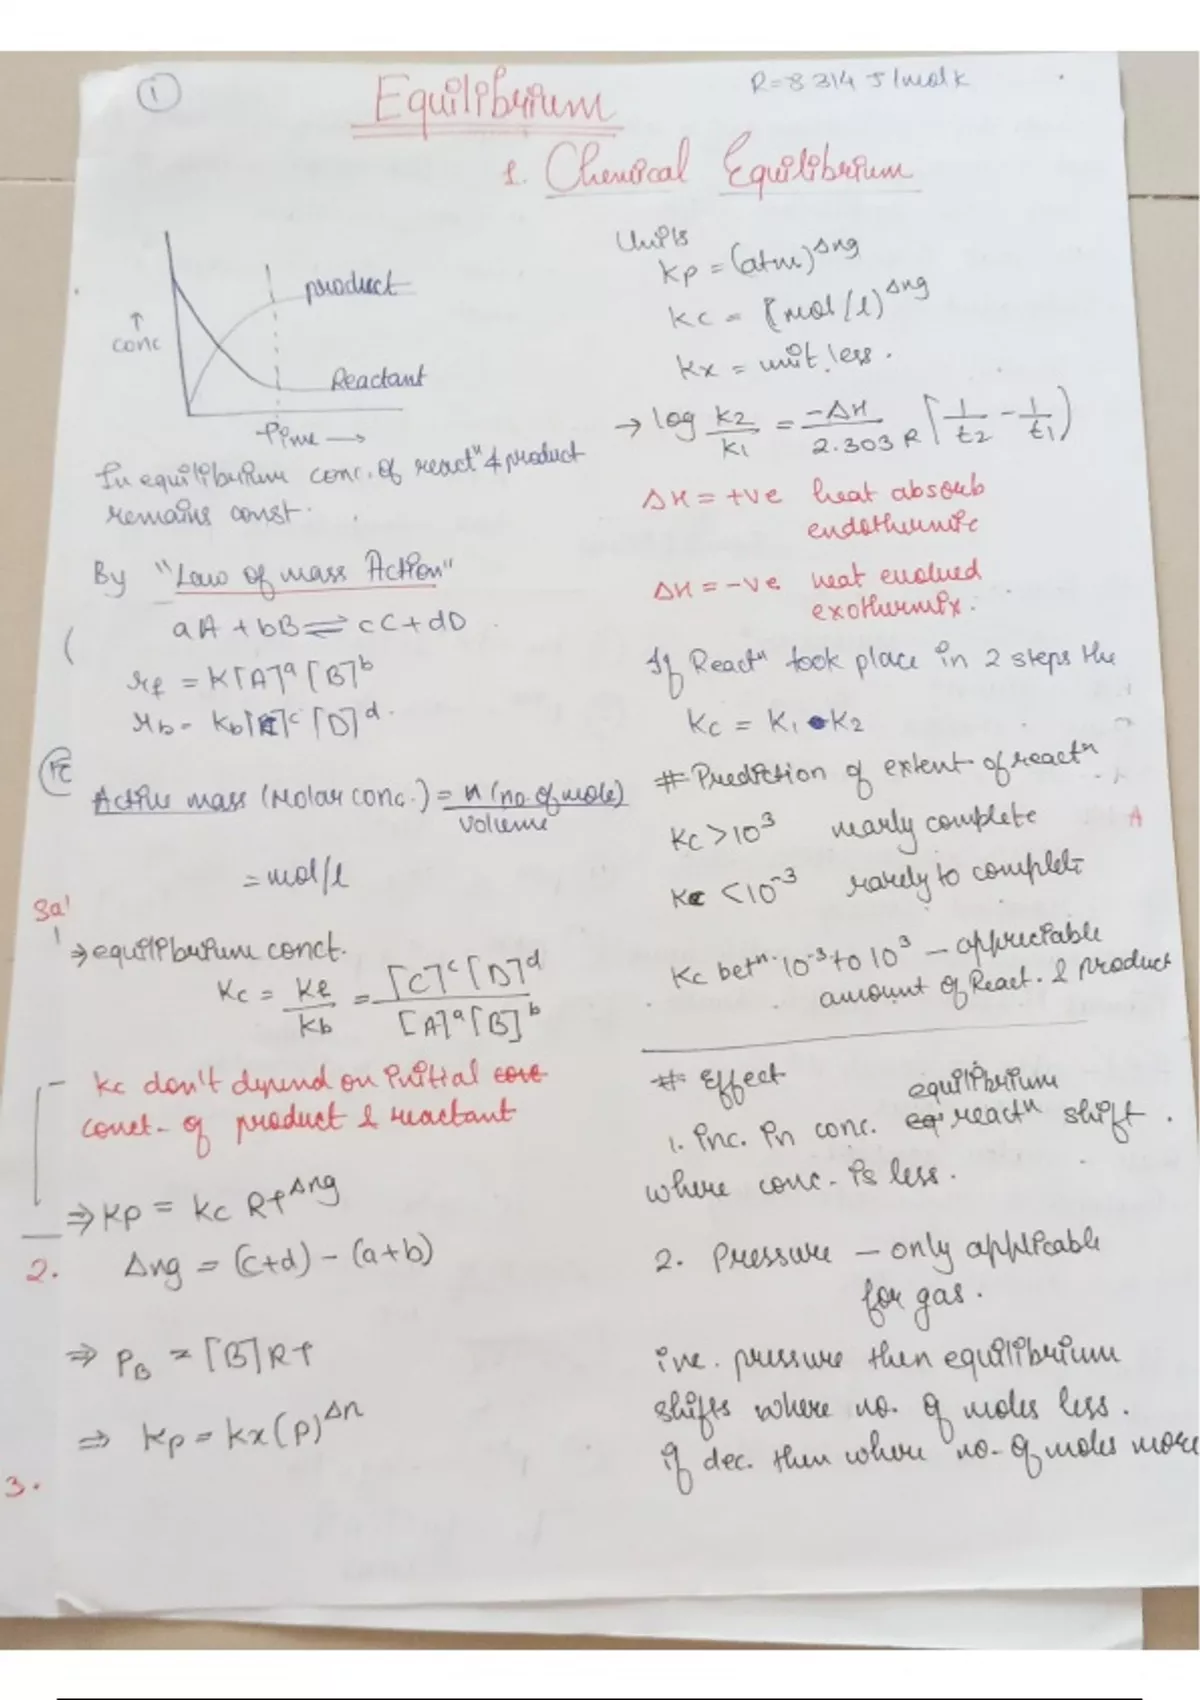 1
Equilibrium
R=8.314 J/mol k
1. Chemical Equilibrium
product
↑
conc
Reactant
Time →
In equilibrium conc. of reactⁿ & product
remains const.
By "Law of mass Action"
aA + bB ⇌ cC + dD
rf = K[A]ᵃ [B]ᵇ
rb = Kb[C]ᶜ [D]ᵈ
Active mass (Molar conc.) = n (no. of mole)
volume
= mol/l
⇒ equilibrium conct.
Kc = Kf / Kb = [C]ᶜ [D]ᵈ / [A]ᵃ [B]ᵇ
Kc don't depend on initial conc
conct- of product & reactant
⇒ Kp = Kc RT^Δng
2. Δng = (c+d) - (a+b)
⇒ PB = [B]RT
⇒ Kp = Kx (P)^Δn
3.
Units
Kp = (atm)^Δng
Kc = (mol/l)^Δng
Kx = unit less.
→ log K2/K1 = -ΔH / 2.303 R [1/t2 - 1/t1)
ΔH = +ve heat absorb
endothermic
ΔH = -ve heat evolved
exothermix.
If Reactⁿ took place in 2 steps the
Kc = K1 • K2
# Prediction of extent of reactⁿ
Kc > 10³ nearly complete
Kc < 10⁻³ rarely to complete
Kc betⁿ. 10⁻³ to 10³ - appreciable
amount of React. & product
# Effect
equilibrium
1. inc. in conc. eqr reactⁿ shift.
where conc. is less.
2. Pressure - only applicable
for gas.
inc. pressure then equilibrium
shifts where no. of moles less.
if dec. then where no. of moles more